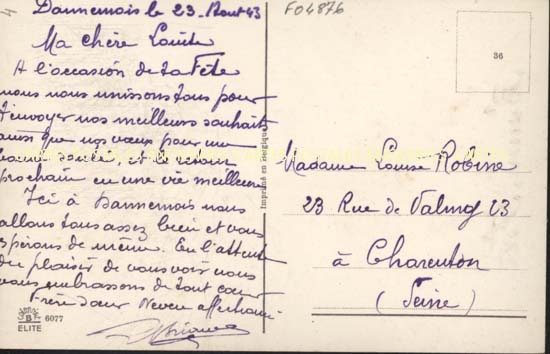 Dannemois le 23 Aout 43
Ma chère Louise
A l'occasion de ta Fête
nous nous unissons tous pour
t'envoyer nos meilleurs souhaits
ainsi que nos vœux pour une
bonne santé, et le retour
prochain en une vie meilleure
Ici à Dannemois nous
allons tous assez bien et vous
espérons de même. En l'attente
du plaisir de vous voir nous
vous embrassons de tout cœur
Frère Sœur Neveu affectionné
F04876
36
Imprimé en Belgique
Madame Louise Robine
23 Rue de Valmy 23
à Charenton
(Seine)
ELITE 6077